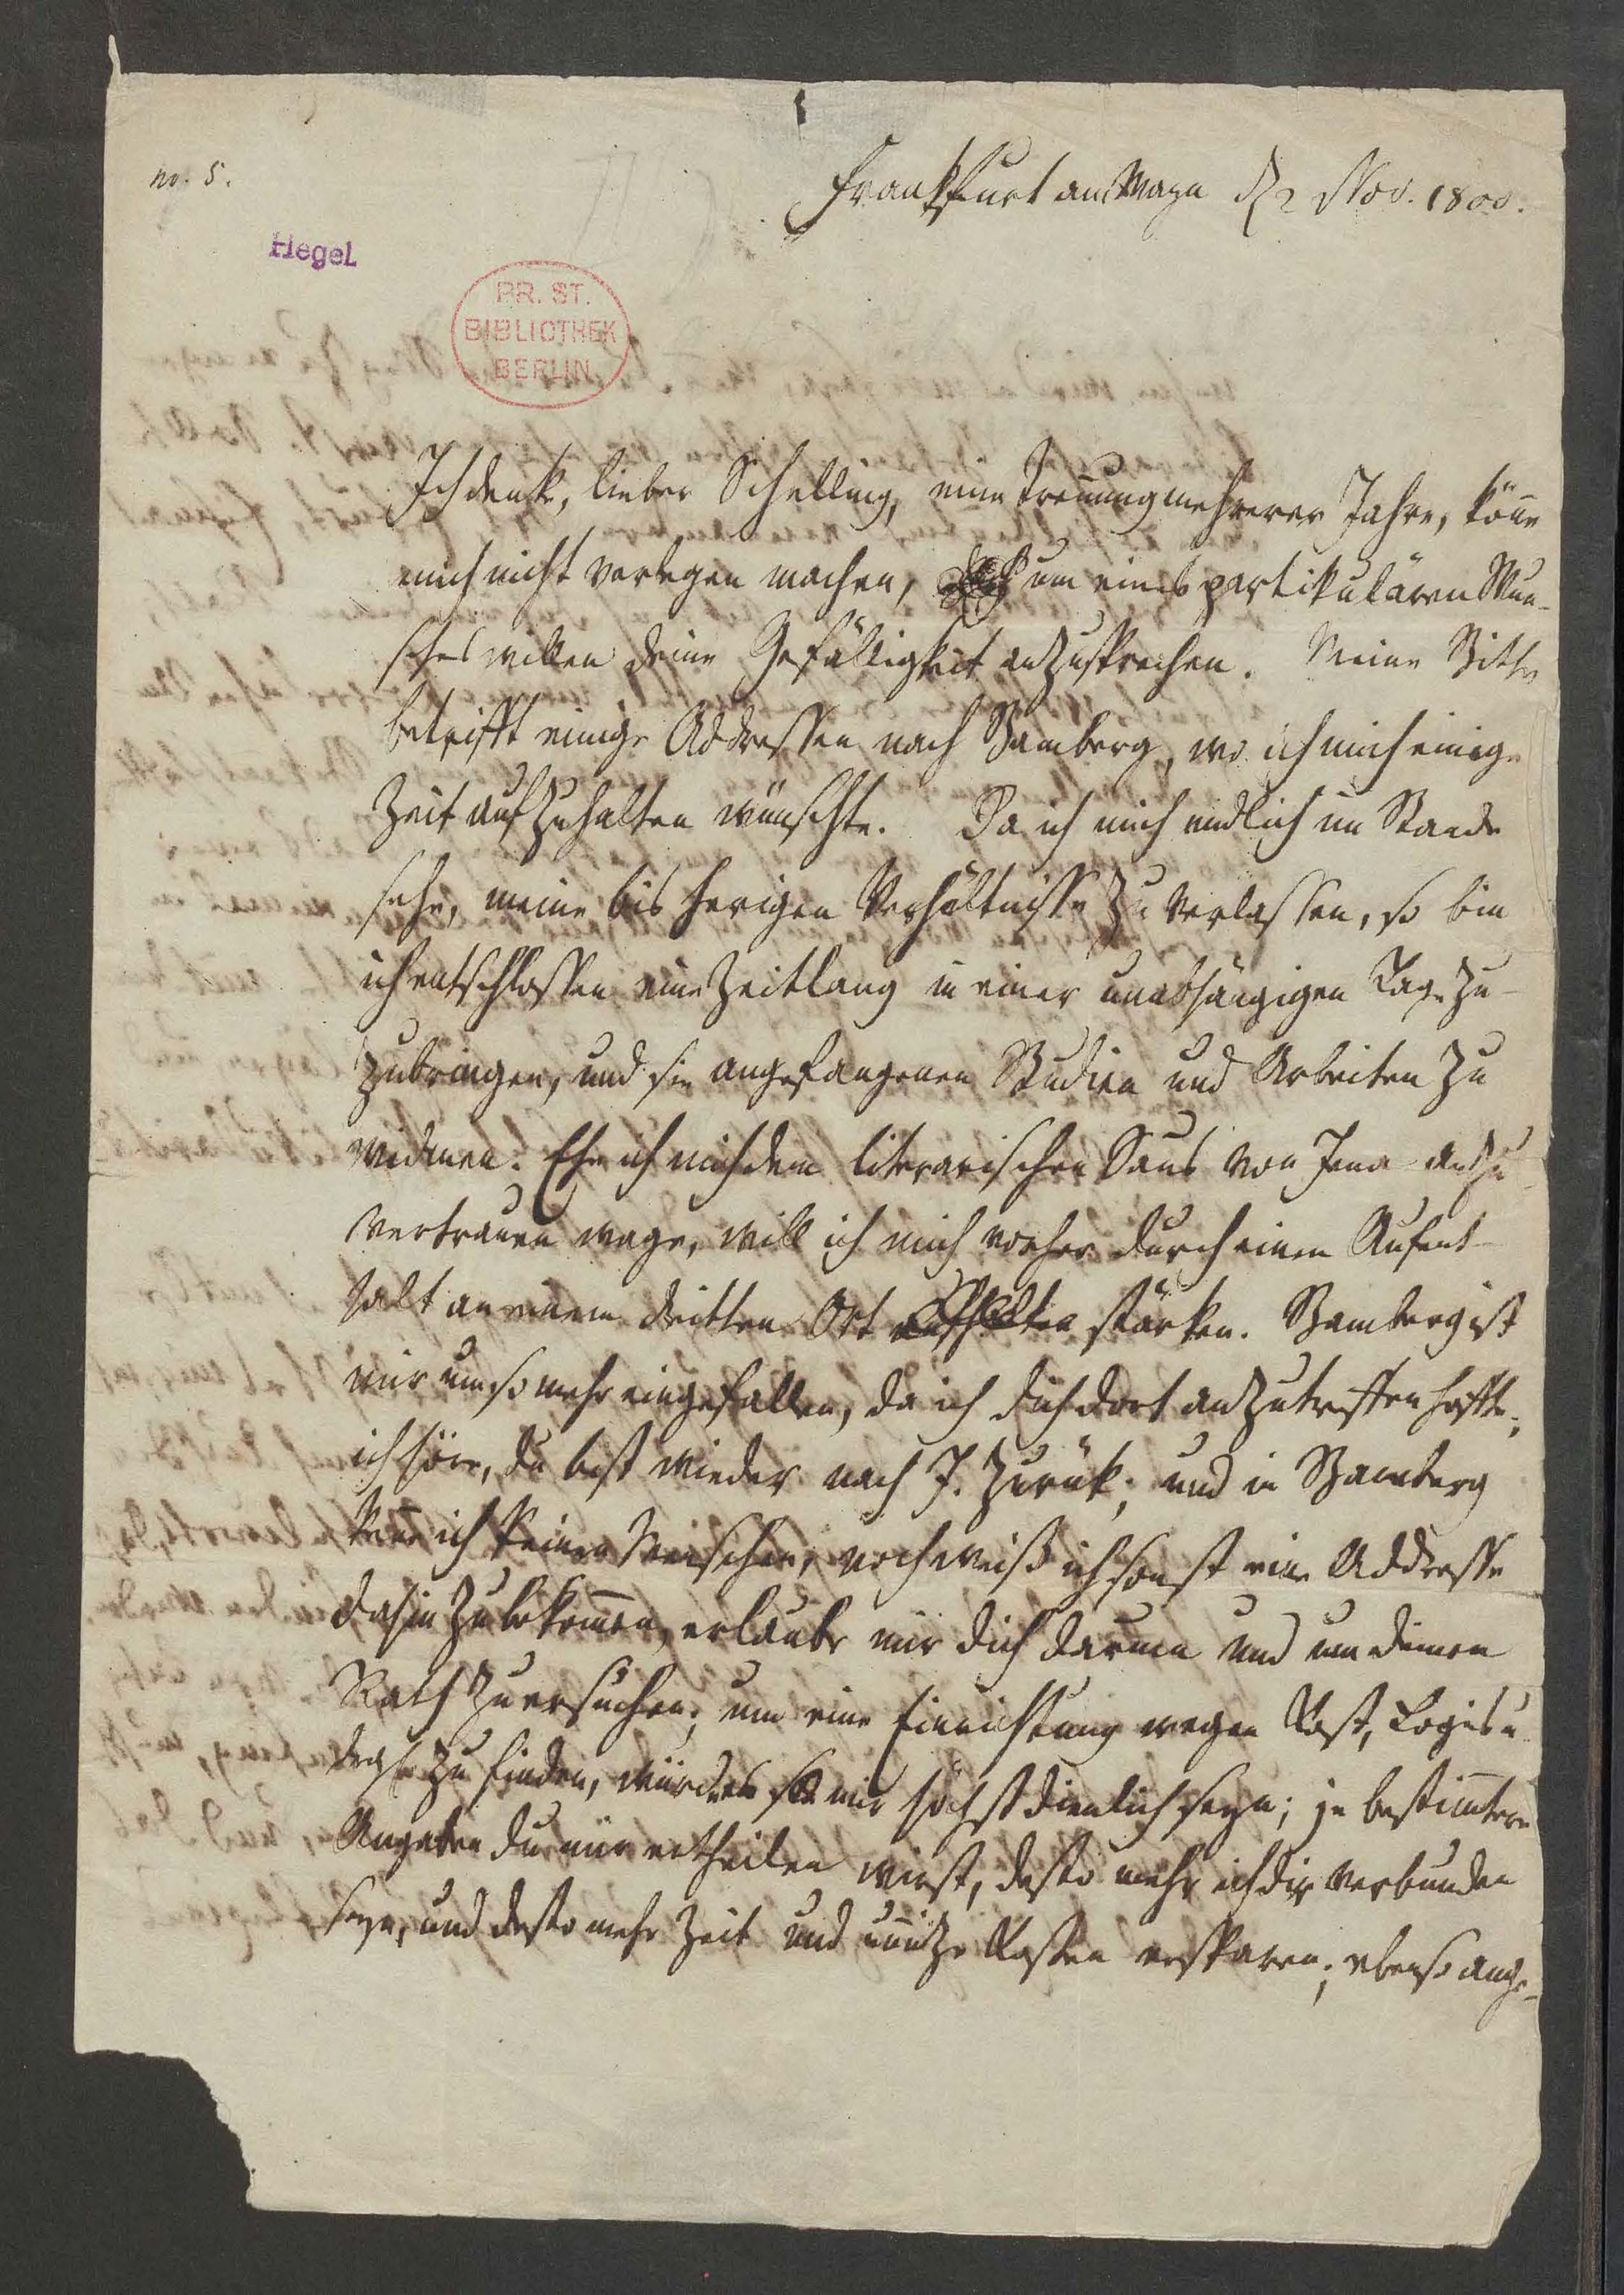 no. 5.
Frankfurt am Mayn d 2 Nov. 1800.
Hegel
PR. ST.
BIBLIOTHEK
BERLIN
Ich denke, lieber Schelling, eine Trennung mehrerer Jahre, könne
mich nicht verlegen machen, um eines partikulären Wun-
sches willen deine Gefälligkeit anzusprechen. Meine Bitte
betrifft einige Addressen nach Bamberg, wo ich mich einige
Zeit aufzuhalten wünschte. Da ich mich endlich im Stande
sehe, meine bisherigen Verhältnisse zu verlassen, so bin
ich entschlossen eine Zeitlang in einer unabhängigen Lage zu-
zubringen, und sie angefangenen Studien und Arbeiten zu
widmen. Ehe ich mich dem literarischen Saus von Jena anzu-
vertrauen wage, will ich mich vorher durch einen Aufent-
halt an einem dritten Ort stärken. Bamberg ist
mir um so mehr eingefallen, da ich dich dort anzutreffen hoffte;
ich höre, du bist wieder nach J. zurük; und in Bamberg
kenne ich keinen Menschen, noch weiß ich sonst eine Addresse
dahin zu bekommen, erlaube mir dich darum und um deinen
Rath zu ersuchen; um eine Einrichtung wegen Kost, Logis u.
drgl. zu finden, würde es mir höchst dienlich seyn; je bestimmtere
Angaben du mir ertheilen wirst, desto mehr ich dir verbunden
seyn, und desto mehr Zeit und unnütze Kosten ersparen; ebenso ange-